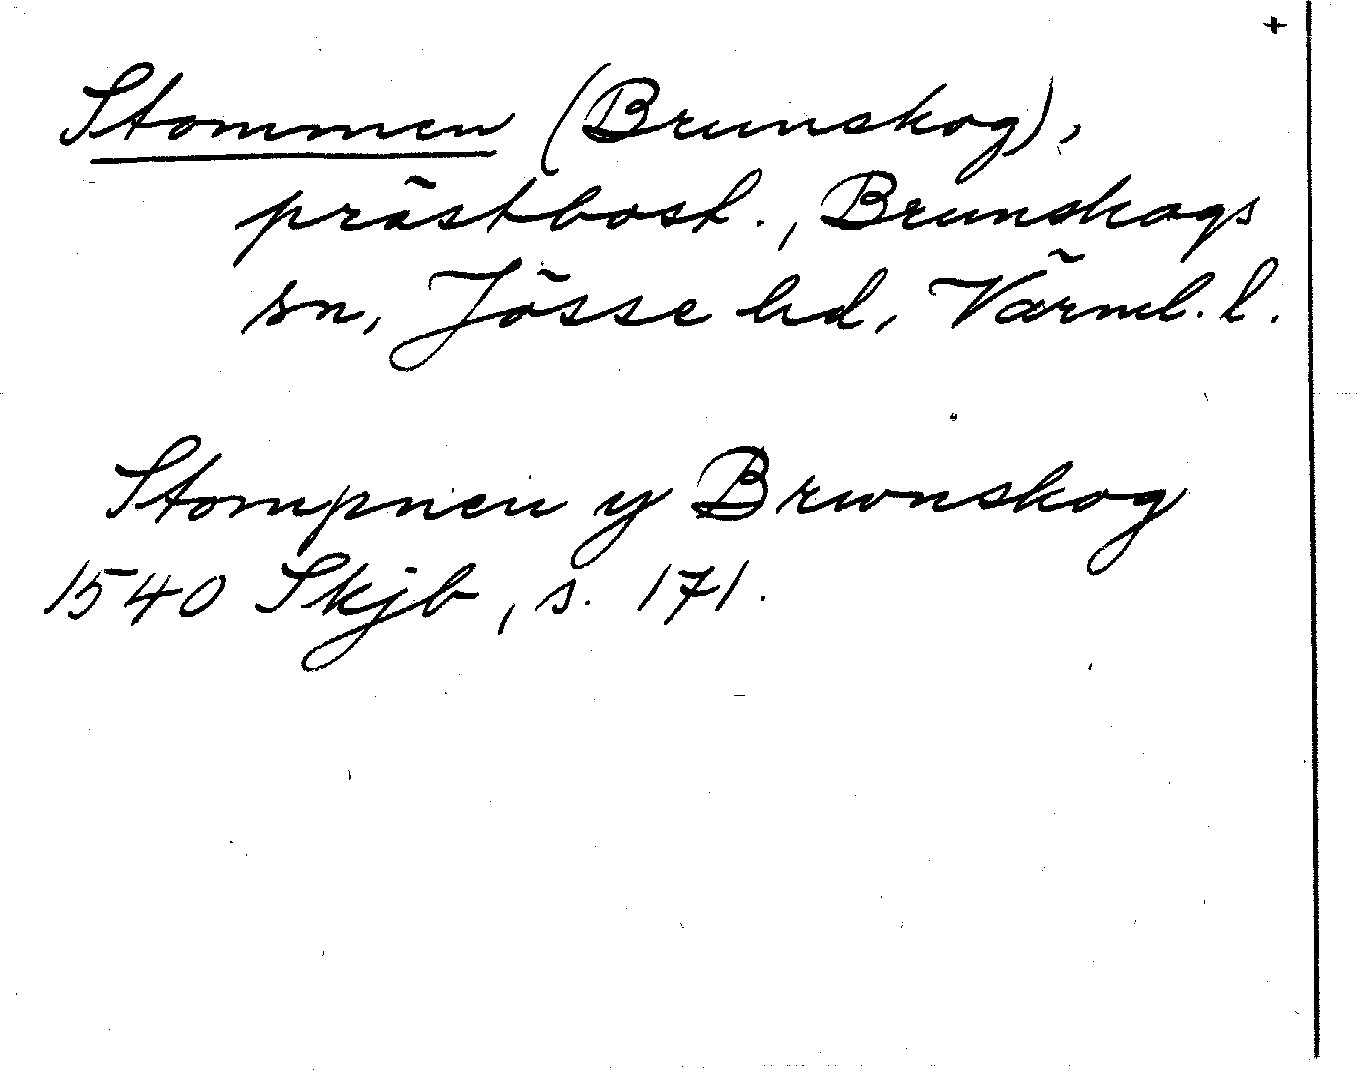 +
Stommen (Brunskog),
prästbost., Brunskogs
sn, Jösse hd, Värml. l.
Stompnen y Brwnskog
1540 Skjb, s. 171.